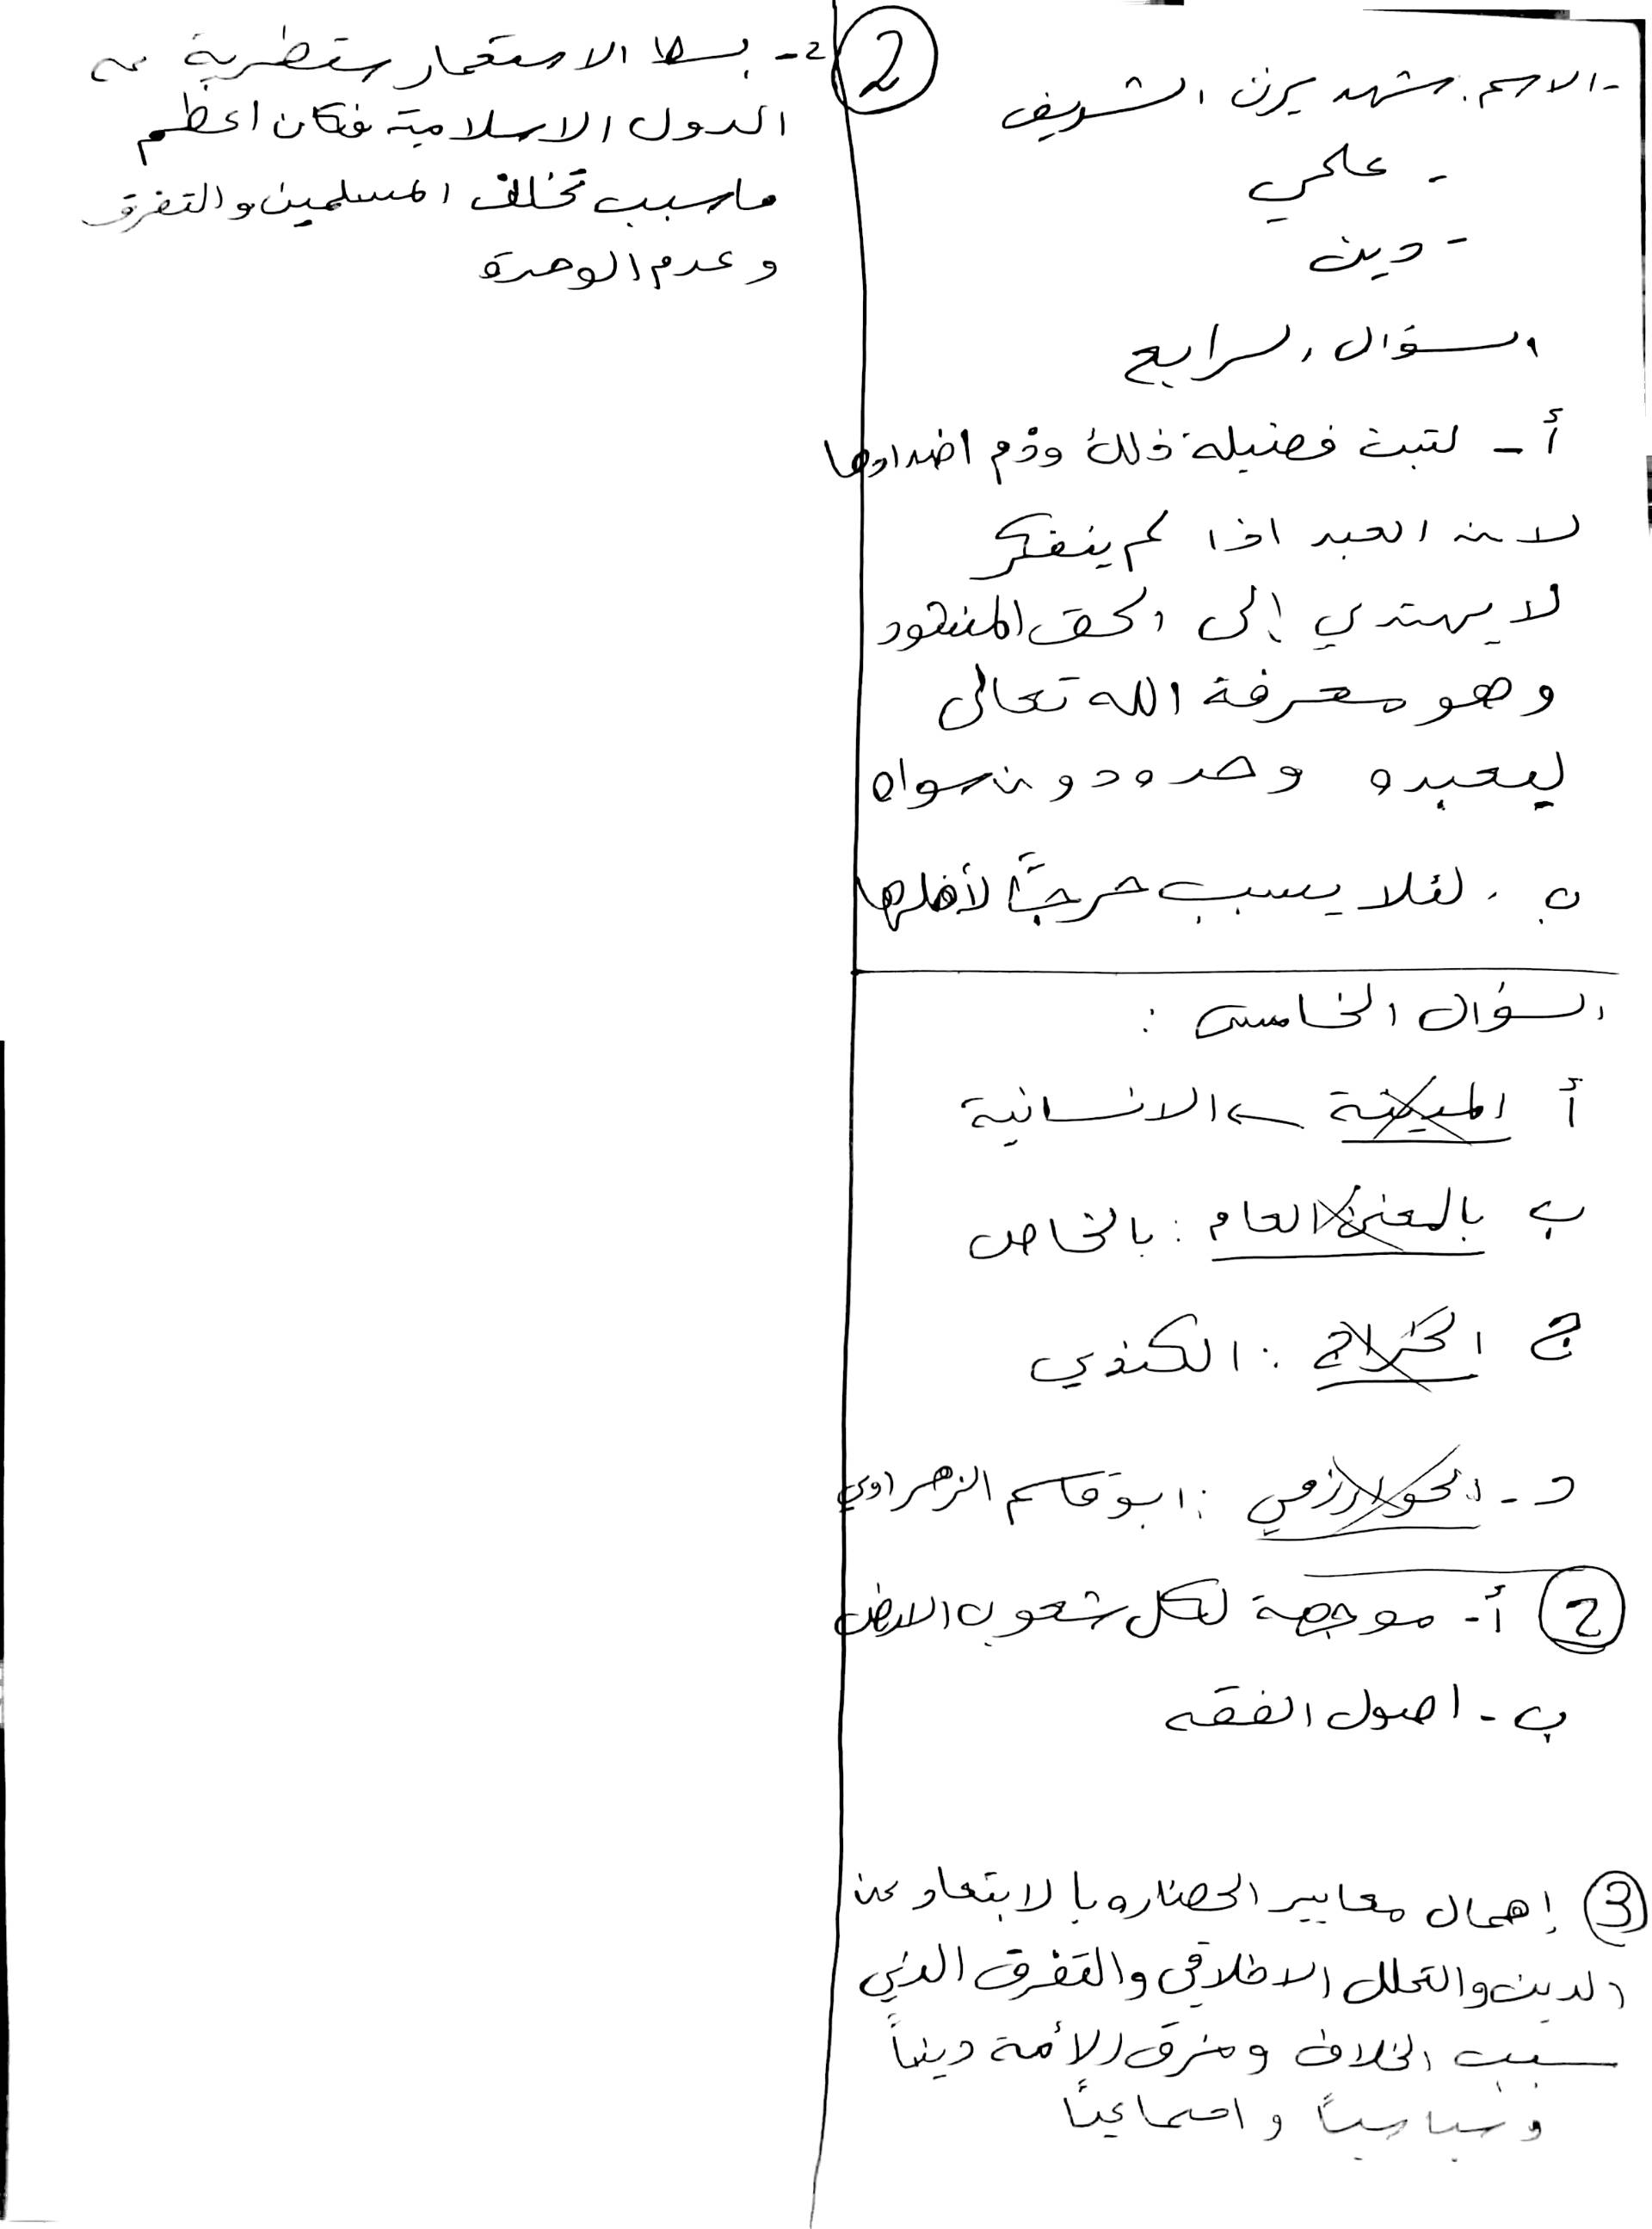 - الاسم: شهد يزن الشريف
- علمي
- دين
السؤال الرابع
أ - لتبت فضيلة ذلك وذم اضدادها
لان العبد اذا لم يتفكر
لا يهتدي إلى الحق المنشود
وهو معرفة الله تعالى
ليعبده وحده دون سواه
ب . لئلا يسبب حرجًا لأهلها
السؤال الخامس :
أ ← الانسانية
ب بالمعنى العام : بالخاص
ج : الكندي
د - الخوارزمي : ابو قاسم الزهراوي
2 أ - موجهة لكل شعوب الارض
ب - اصول الفقه
3 إهمال معايير الحضاره بالابتعاد عن
الدين والتحلل الاخلاقي والتفرق الذي
سبب الخلاف ومزق الأمة دينياً
وسياسياً واجتماعياً
2
2- بسط الاستعمار سيطرته على
الدول الاسلامية فكان اعظم
ما سبب تخلف المسلمين والتفرق
وعدم الوحدة